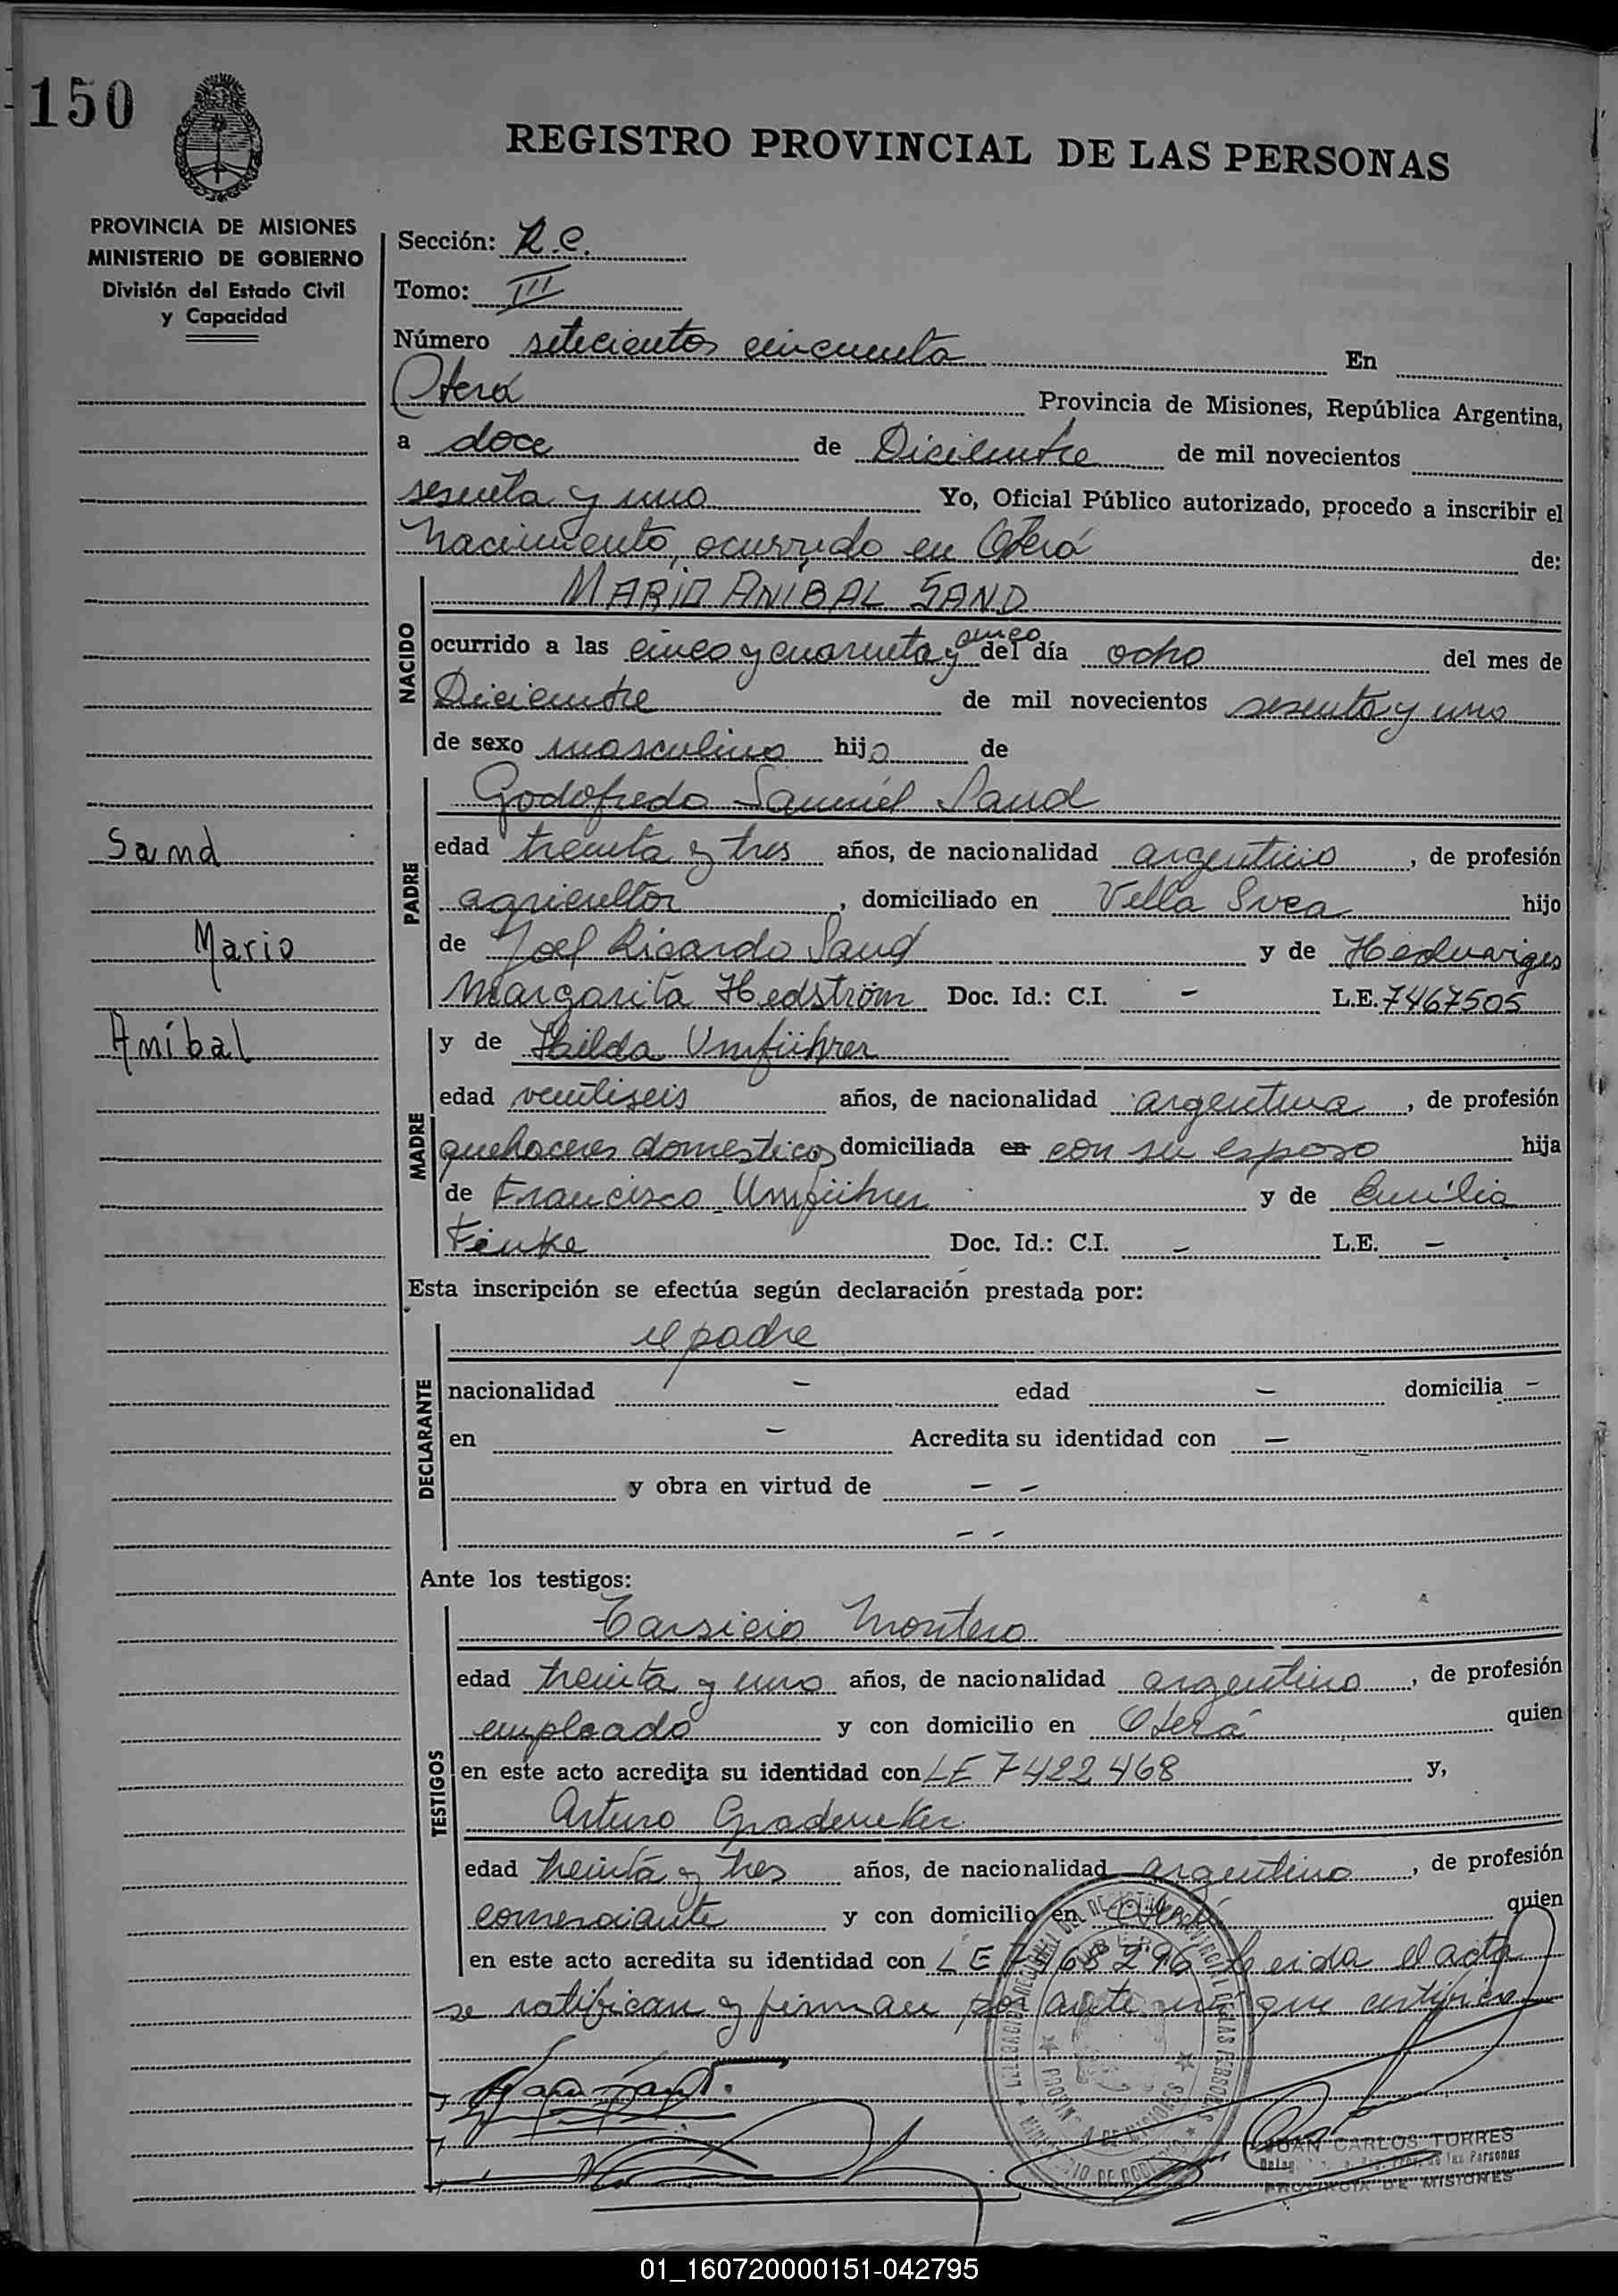 150
REGISTRO PROVINCIAL DE LAS PERSONAS
PROVINCIA DE MISIONES
MINISTERIO DE GOBIERNO
División del Estado Civil
y Capacidad
Sección: R.C.
Tomo: III
Número setecientos cincuenta En
Oberá Provincia de Misiones, República Argentina,
a doce de Diciembre de mil novecientos
sesenta y uno Yo, Oficial Público autorizado, procedo a inscribir el
nacimiento, ocurrido en Oberá de:
NACIDO
MARIO ANÍBAL SAND
ocurrido a las cinco y cuarenta y cinco del día ocho del mes de
Diciembre de mil novecientos sesenta y uno
de sexo masculino hijo de
PADRE
Godofredo Samuel Sand
Sand
edad treinta y tres años, de nacionalidad argentino, de profesión
agricultor, domiciliado en Villa Svea hijo
Mario
de Joel Ricardo Sand y de Hedwariges
Margarita Hedström Doc. Id.: C.I. - L.E. 7467505
Aníbal
MADRE
y de Hilda Umführer
edad ventiseis años, de nacionalidad argentina, de profesión
quehaceres domesticos domiciliada en con su esposo hija
de Francisco Umführer y de Emilia
Finke Doc. Id.: C.I. - L.E. -
Esta inscripción se efectúa según declaración prestada por:
DECLARANTE
el padre
nacionalidad - edad - domicilia -
en - Acredita su identidad con -
y obra en virtud de - -
- -
Ante los testigos:
TESTIGOS
Tarsicio Montero
edad treinta y uno años, de nacionalidad argentino, de profesión
empleado y con domicilio en Oberá quien
en este acto acredita su identidad con LE 7422468 y,
Arturo
edad treinta y tres años, de nacionalidad argentino, de profesión
comerciante y con domicilio en Oberá quien
en este acto acredita su identidad con LE Leida el acta
se ratifican y firman por ante mí que certifico
JUAN CARLOS TORRES
PROVINCIA DE MISIONES
01_160720000151-042795